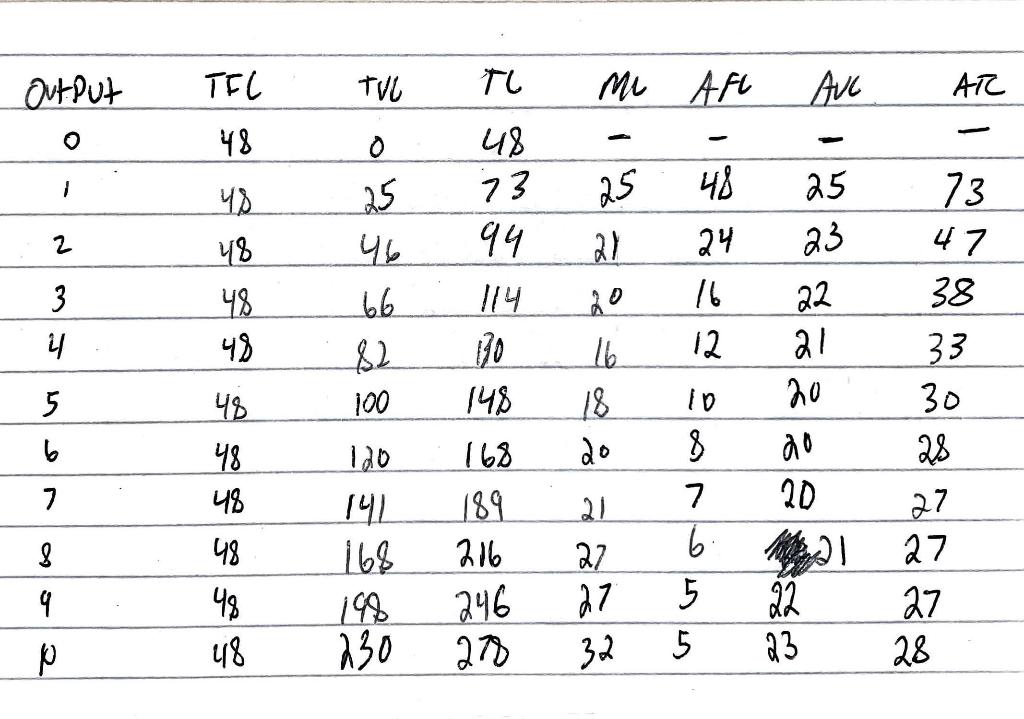 OutPut TFC TVC TC MC AFC AVC ATC
0 48 0 48 - - - -
1 48 25 73 25 48 25 73
2 48 46 94 21 24 23 47
3 48 66 114 20 16 22 38
4 48 82 130 16 12 21 33
5 48 100 148 18 10 20 30
6 48 120 168 20 8 20 28
7 48 141 189 21 7 20 27
8 48 168 216 27 6 21 27
9 48 198 246 27 5 22 27
10 48 230 278 32 5 23 28